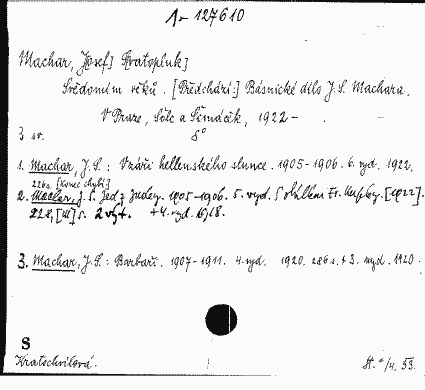 1- 127610
Machar, J[osef] S[vatopluk]
Svědomím věků. [Předchází:] Básnické dílo J. S. Machara.
V Praze, Šolc a Šimáček, 1922 -
3 sv. 8°
1. Machar, J. S.: V záři hellenského slunce. 1905-1906. 6. vyd. 1922.
226 s. [Konec chybí]
2. Machar, J. S. Jed z Judey. 1905-1906. 5. vyd. S obálkou Fr. [1922].
228, [III] s. 2 výt. + 4. vyd. 1918.
3. Machar, J. S.: Barbaři. 1907-1911. 4. vyd. 1920. 286 s. + 3. vyd. 1920.
S
Kratochvílová. St. 4. 53.